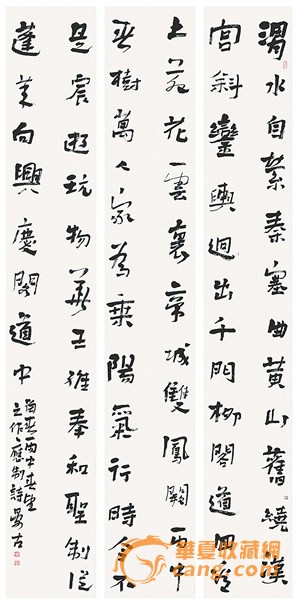 渭水自縈秦塞曲黃山舊繞漢
宮斜鑾輿迥出千門柳閣道回看
上苑花雲裏帝城雙鳳闕雨中
春樹萬人家為乘陽氣行時令不
是宸遊玩物華王維奉和聖制從
蓬萊向興慶閣道中
留春雨中春望
之作應制詩
华夏收藏网
cang.com